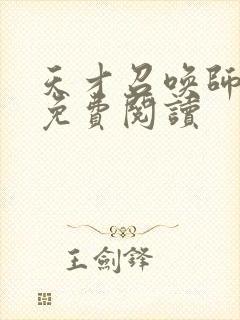 天才召喚師
免費閱讀
王劍鋒